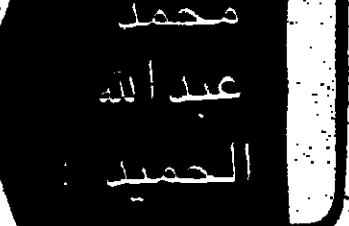 محمد
عبد الله
الحميد